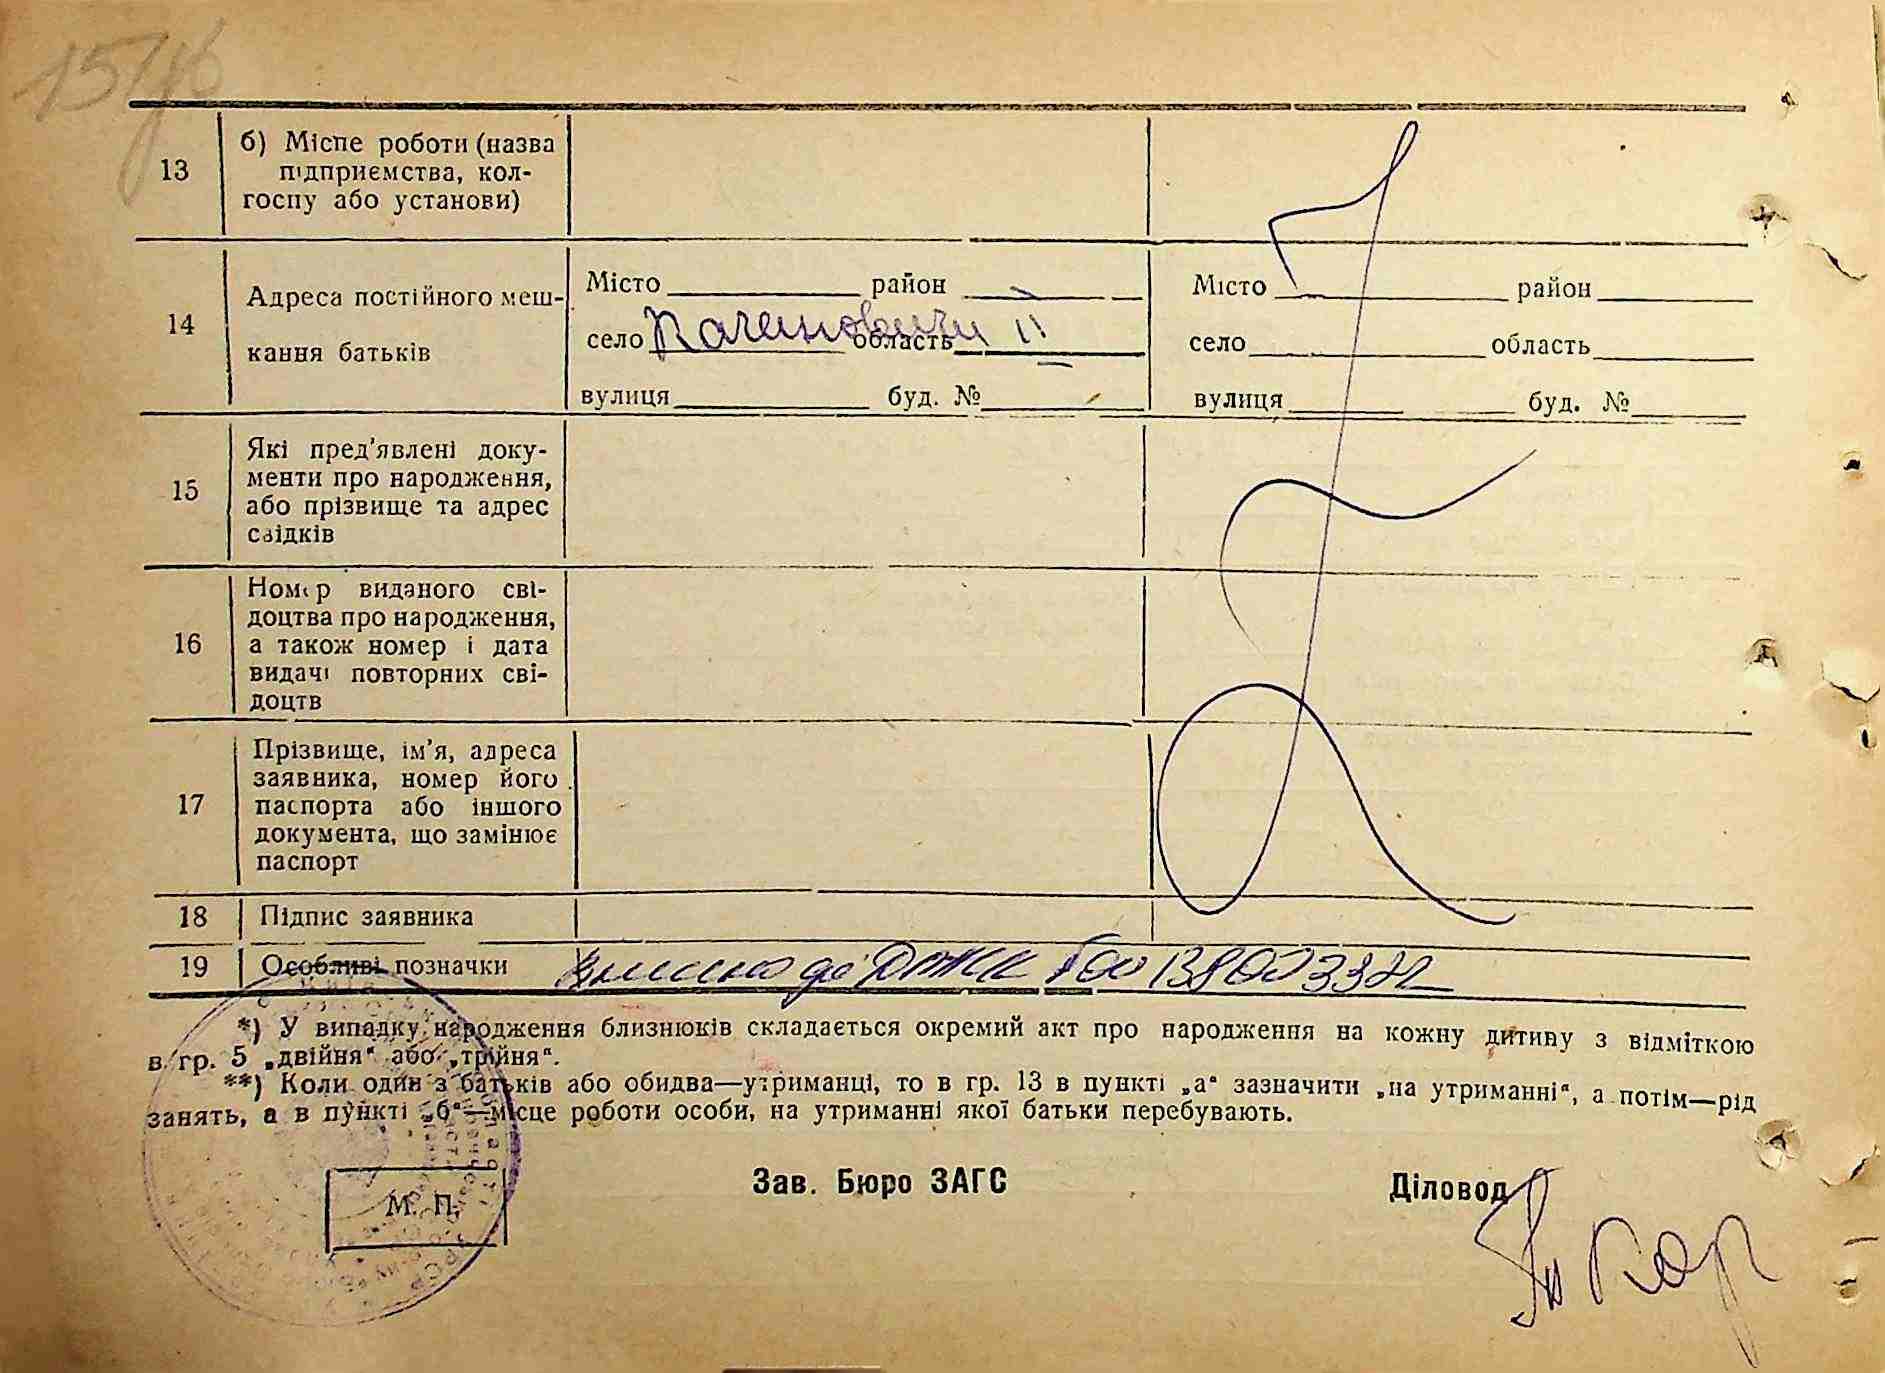 13
б) Місце роботи (назва
підприємства, кол-
госпу або установи)
14
Адреса постійного меш-
кання батьків
Місто район
село Каченовичі область
вулиця буд. №
Місто район
село область
вулиця буд. №
15
Які пред’явлені доку-
менти про народження,
або прізвище та адрес
свідків
16
Номер виданого сві-
доцтва про народження,
а також номер і дата
видачі повторних сві-
доцтв
17
Прізвище, ім’я, адреса
заявника, номер його
паспорта або іншого
документа, що замінює
паспорт
18 Підпис заявника
19 Особливі позначки
*) У випадку народження близнюків складається окремий акт про народження на кожну дитину з відміткою
в гр. 5 „двійня“ або „трійня“.
**) Коли один з батьків або обидва—утриманці, то в гр. 13 в пункті „а“ зазначити „на утриманні“, а потім—рід
занять, а в пункті „б“—місце роботи особи, на утриманні якої батьки перебувають.
М. П.
Зав. Бюро ЗАГС
Діловод